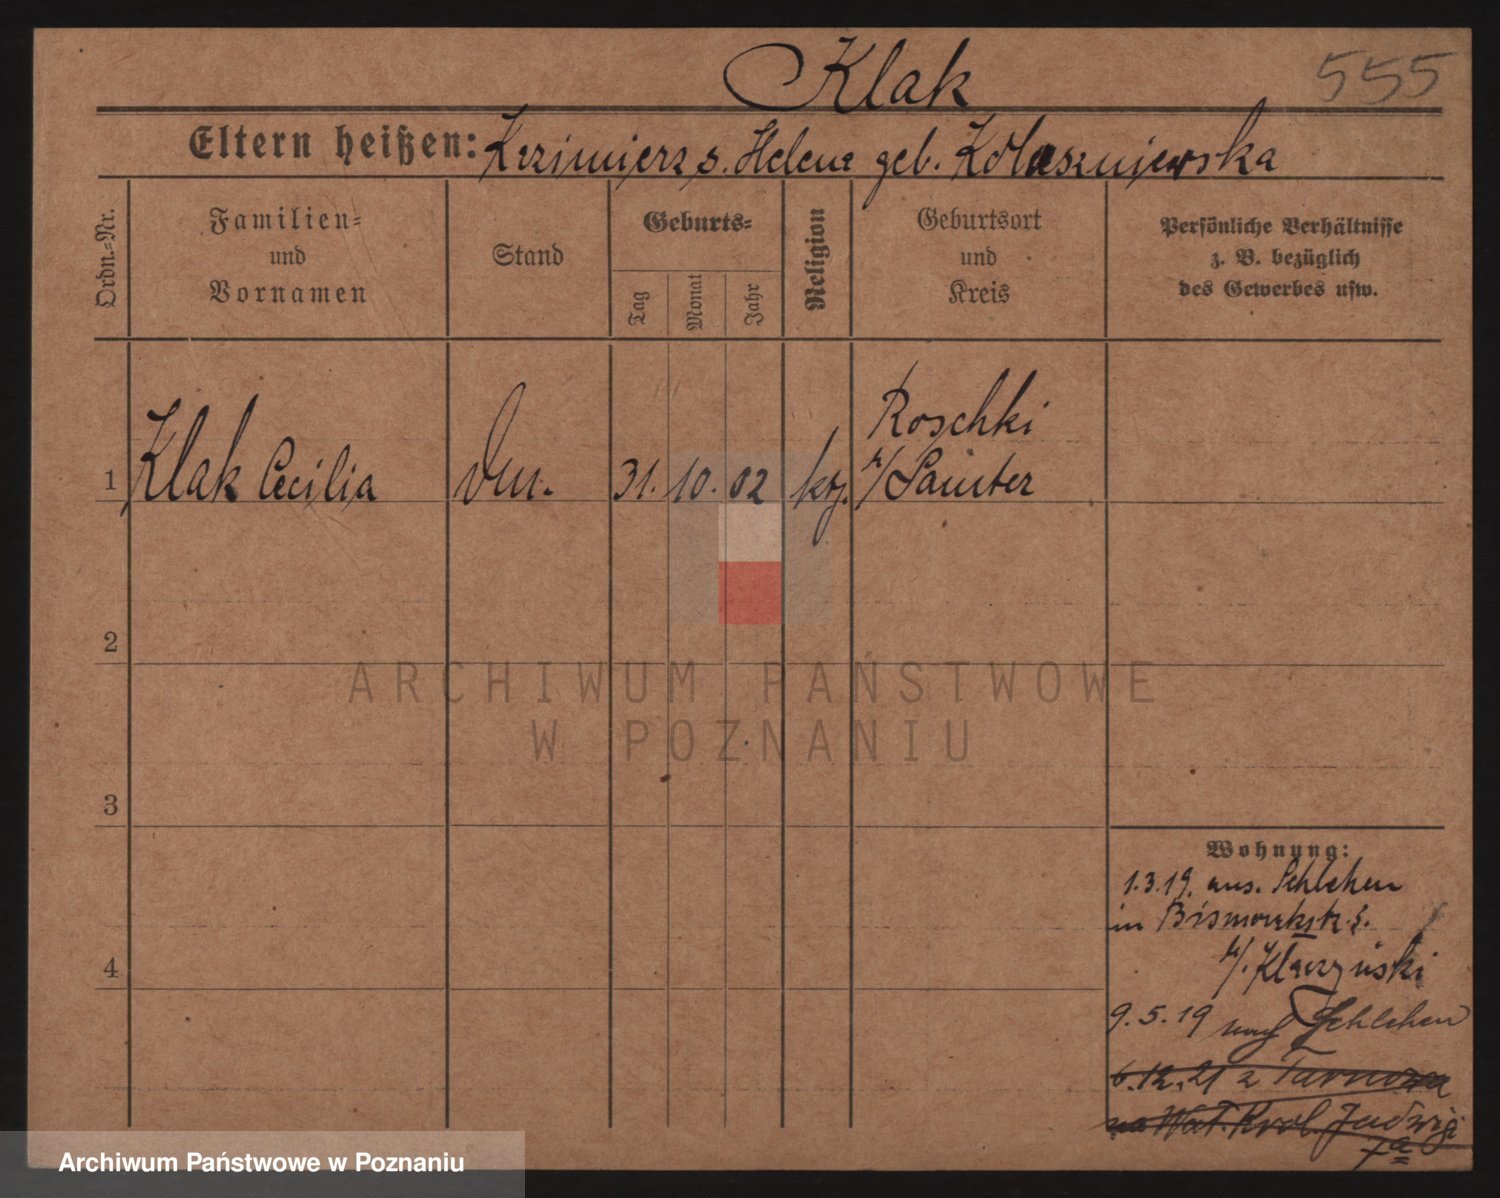 Klak 555
Eltern heißen: Kazimierz s. Helene geb. Kołaszniewska
Ordn.-Nr.
Familien-
und
Vornamen
Stand
Geburts-
Tag
Monat
Jahr
Religion
Geburtsort
und
Kreis
Persönliche Verhältnisse
z. B. bezüglich
des Gewerbes usw.
1 Klak Cecilia 31. 10. 02 Roschki
Samter
2
3
4
Wohnung:
1.3.19. aus. Schlehen
in Bismarckstr.
9.5.19 nach Schlehen
6.12.21 z Tarnowa
na Wał. Krol. Jadwigi
7a
ARCHIWUM PAŃSTWOWE
W POZNANIU
Archiwum Państwowe w Poznaniu